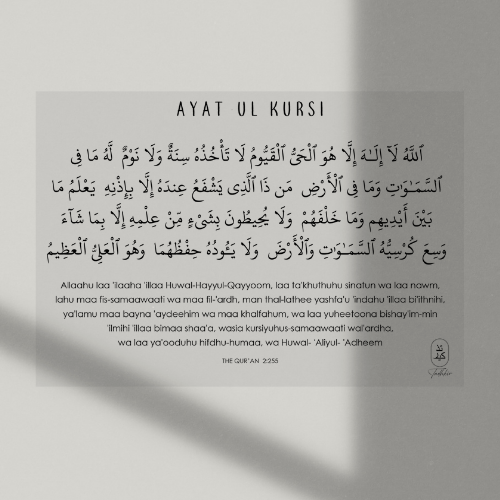 AYAT UL KURSI
ٱللَّهُ لَآ إِلَـٰهَ إِلَّا هُوَ ٱلْحَىُّ ٱلْقَيُّومُ لَا تَأْخُذُهُ سِنَةٌ وَلَا نَوْمٌ لَّهُ مَا فِى
ٱلسَّمَـٰوَٰتِ وَمَا فِى ٱلْأَرْضِ مَن ذَا ٱلَّذِى يَشْفَعُ عِندَهُ إِلَّا بِإِذْنِهِ يَعْلَمُ مَا
بَيْنَ أَيْدِيهِمْ وَمَا خَلْفَهُمْ وَلَا يُحِيطُونَ بِشَىْءٍ مِّنْ عِلْمِهِ إِلَّا بِمَا شَآءَ
وَسِعَ كُرْسِيُّهُ ٱلسَّمَـٰوَٰتِ وَٱلْأَرْضَ وَلَا يَـُٔودُهُ حِفْظُهُمَا وَهُوَ ٱلْعَلِىُّ ٱلْعَظِيمُ
Allaahu laa 'ilaaha 'illaa Huwal-Hayyul-Qayyoom, laa ta'khuthuhu sinatun wa laa nawm,
lahu maa fis-samaawaati wa maa fil-'ardh, man thal-lathee yashfa'u 'indahu 'illaa bi'ithnihi,
ya'lamu maa bayna 'aydeehim wa maa khalfahum, wa laa yuheetoona bishay'im-min
'ilmihi 'illaa bimaa shaa'a, wasia kursiyuhus-samaawaati wal'ardha,
wa laa ya'ooduhu hifdhu-humaa, wa Huwal- 'Aliyul- 'Adheem
THE QUR'AN 2:255